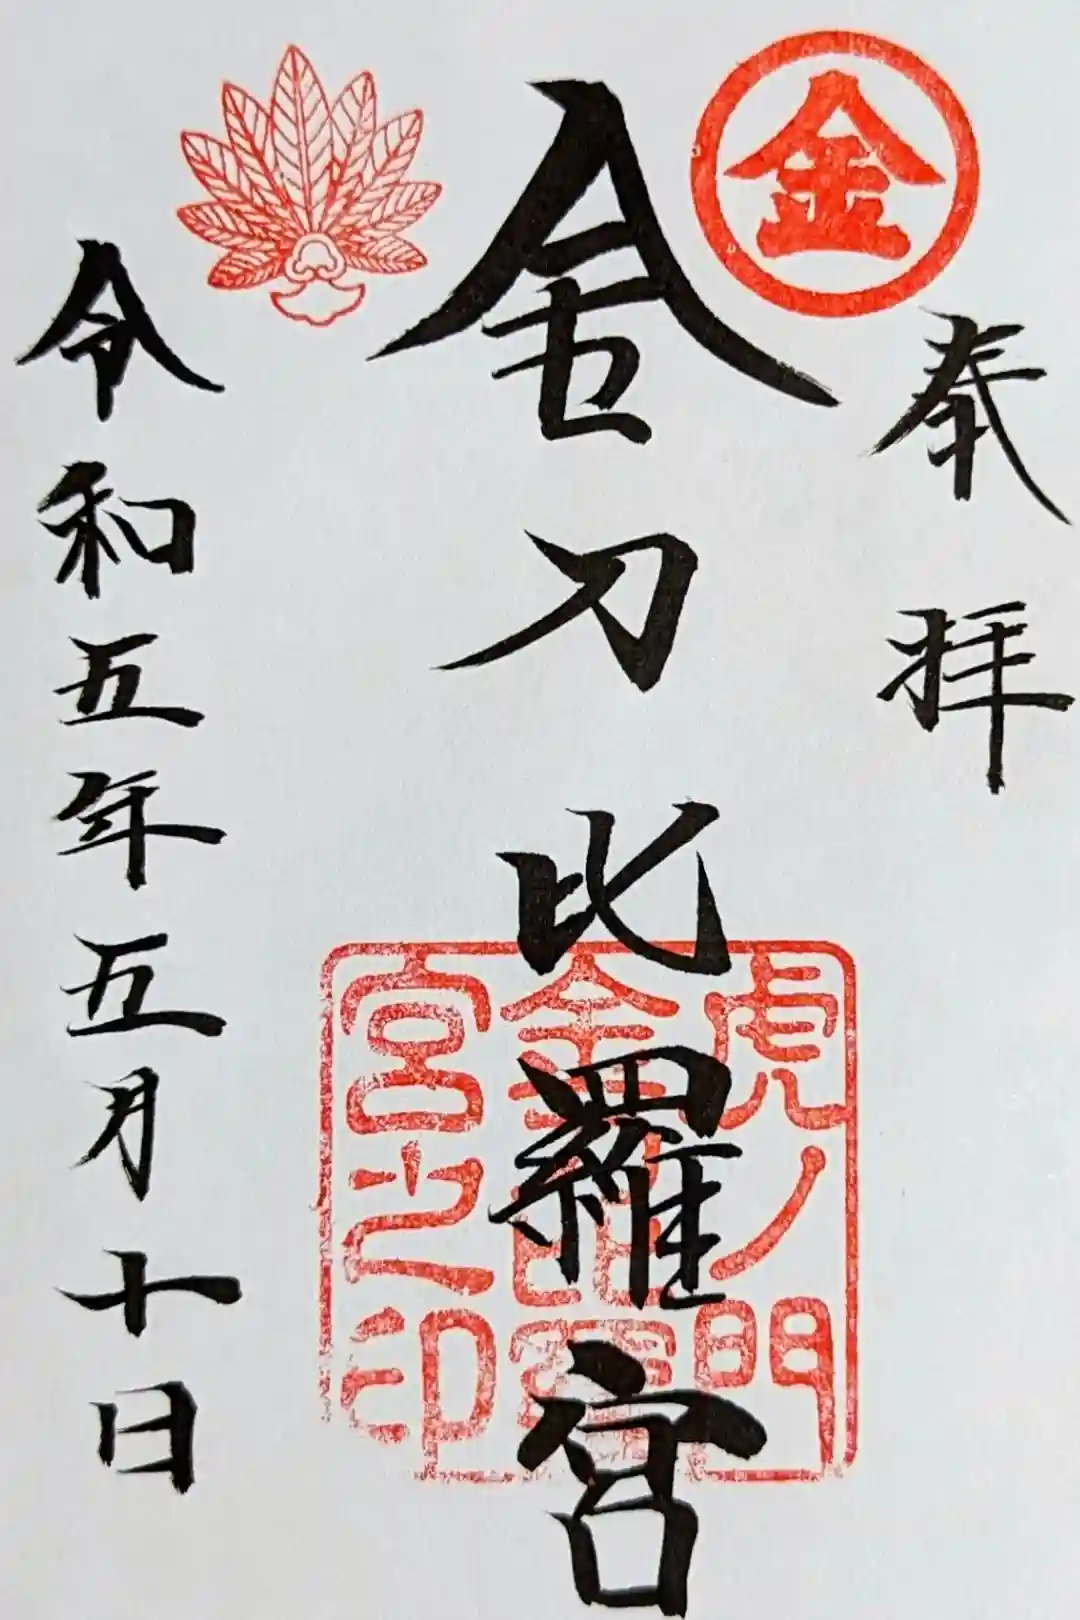 奉拝
金
金刀比羅宮
虎ノ門
金刀比羅
宮之印
令和五年五月十日